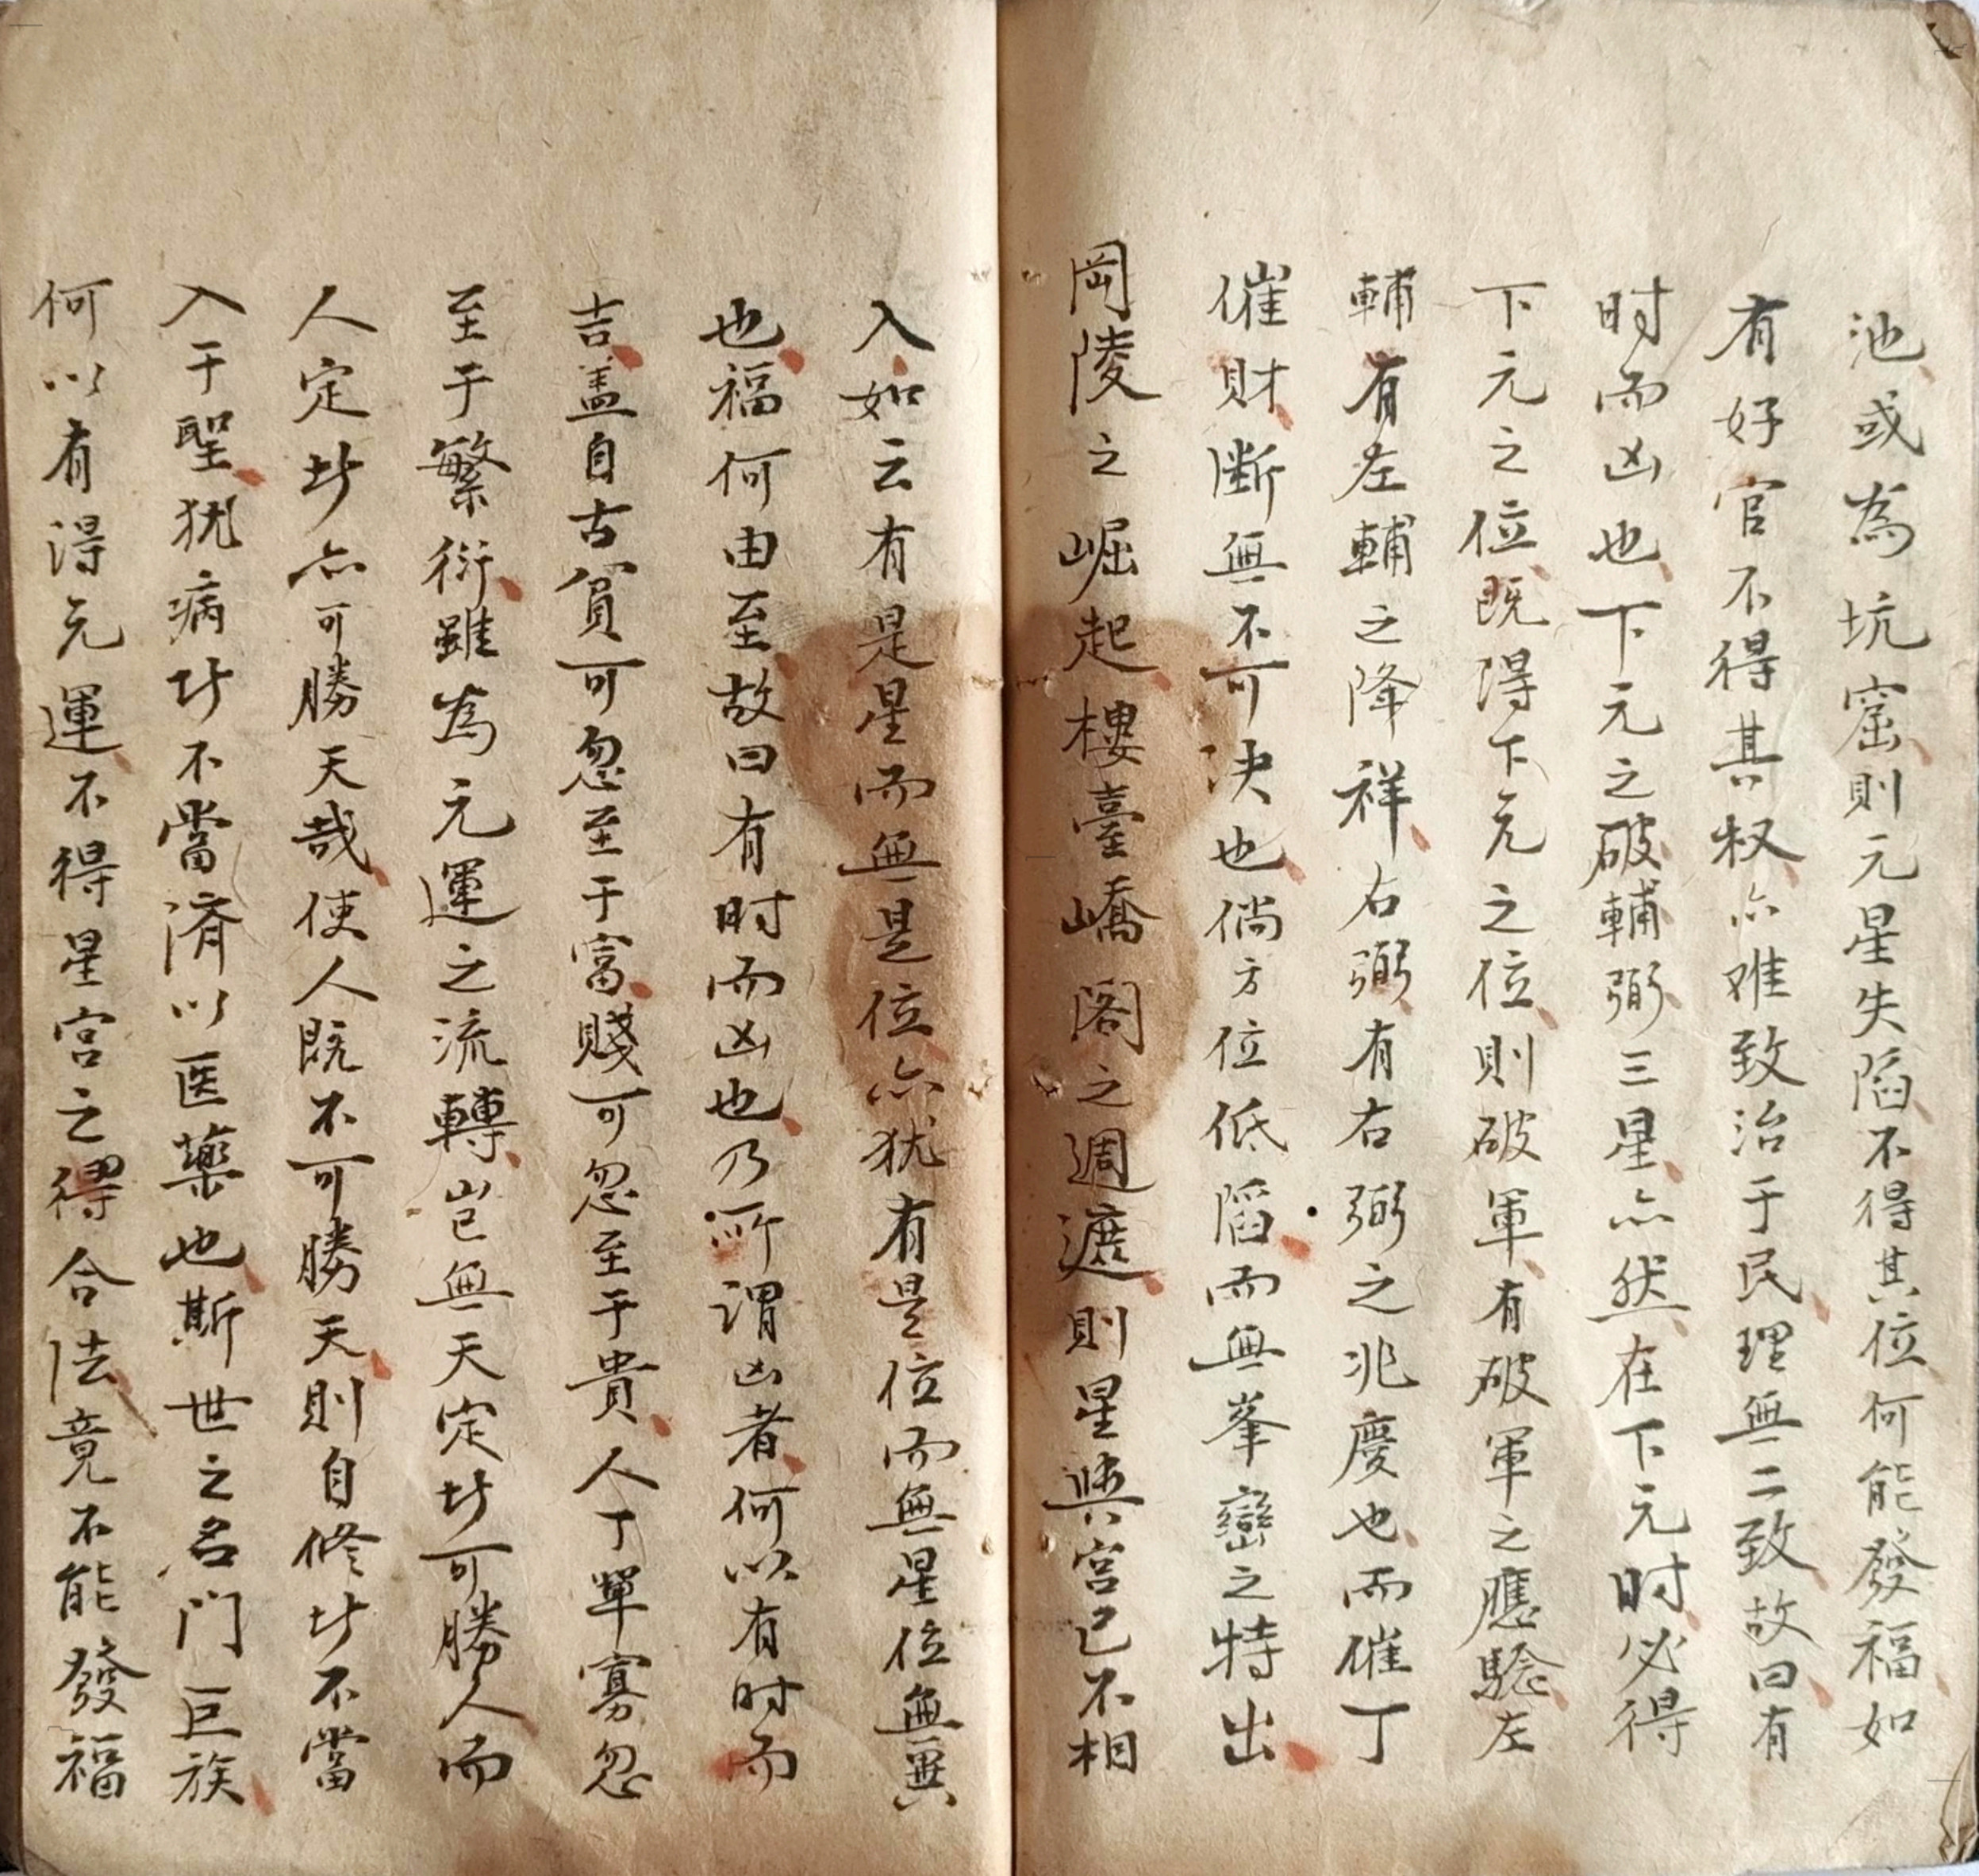 池或為坑窟則元星失陷不得其位何能發福如
有好官不得其权亦难致治于民理無二致故曰有
时而凶也下元之破輔弼三星亦然在下元时必得
下元之位既得下元之位則破軍有破軍之應驗左
輔有左輔之降祥右弼有右弼之兆慶也而催丁
催財断無不可决也倘方位低陷而無峯巒之特出
岡陵之崛起樓臺嶠阁之週遮則星與宮已不相
入如云有是星而無是位亦犹有是位而無星位無異
也福何由至故曰有时而凶也乃所谓凶者何以有时而
吉盖自古貧可忽至于富賤可忽至于貴人丁單寡忽
至于繁衍雖為元運之流轉岂無天定坿可勝人而
人定坿亦可勝天哉使人既不可勝天則自修坿不當
入于聖犹病坿不當済以医藥也斯世之名門巨族
何以有得元運不得星宮之得合法竟不能發福